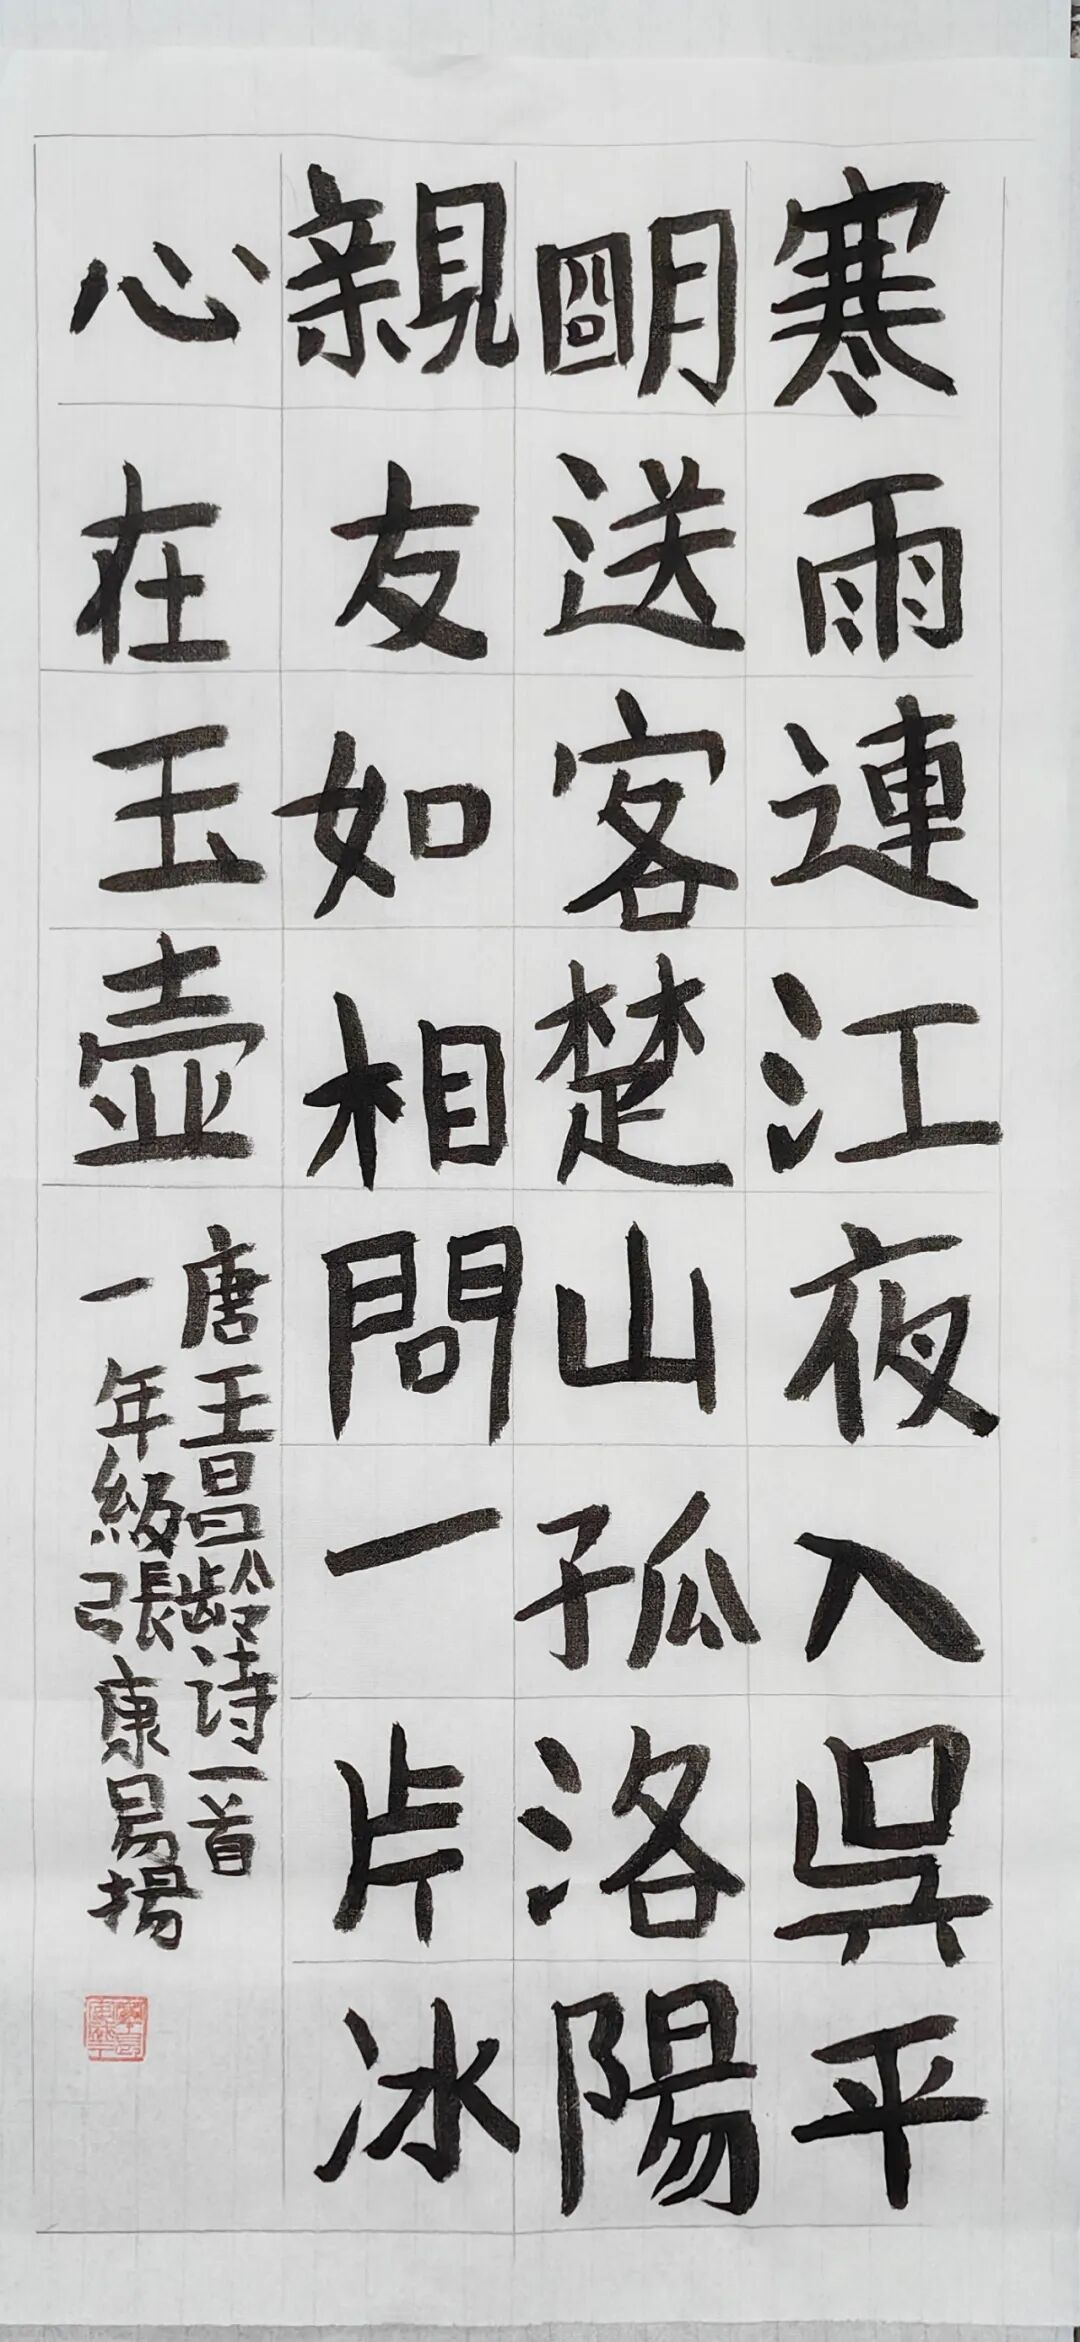 寒雨連江夜入吴平
明送客楚山孤洛陽
親友如相問一片冰
心在玉壶
唐王昌龄诗一首
一年級張康易揚